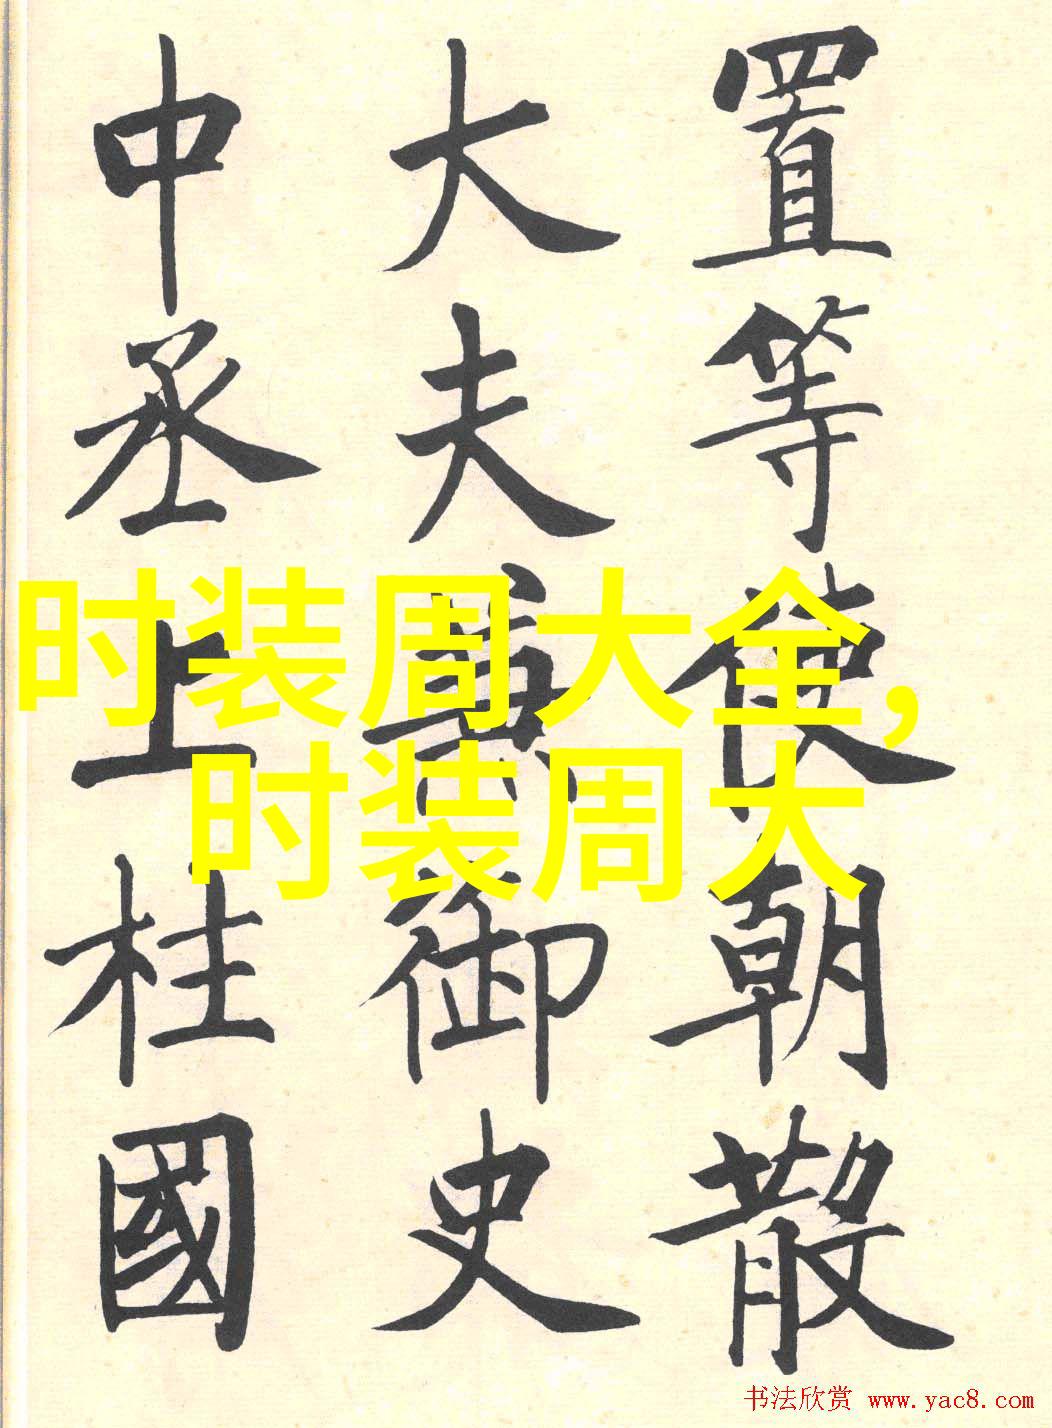 置等使朝散
大夫兼御史
中丞上柱國
时装周大全,
时装周大
书法欣赏 www.yac8.com